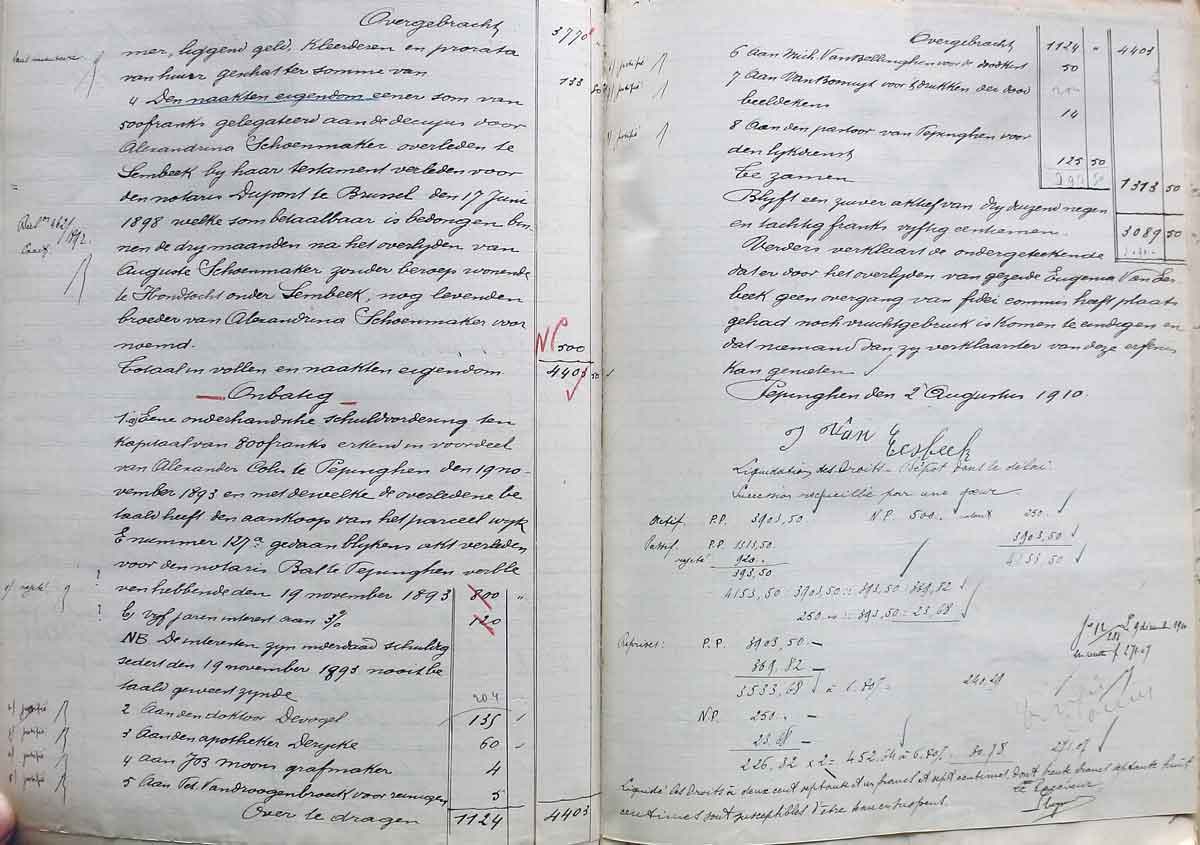 Overgebracht 3770
mer, liggend geld, kleerderen en prorata
van huur geschatter somme van 133 50
4 Den naakten eigendom eener som van
500 franks gelegateerd aan de decujus door
Alexandrina Schoenmaker overleden te
Lembeek by haar testament verleden voor
den notaris Dupont te Brussel den 17 Juni
1898 welke som betaalbaar is bedongen bin-
nen de dry maanden na het overlyden van
Auguste Schoenmaker zonder beroep wonende
te Hondtocht onder Lembeek, nog levenden
broeder van Alexandrina Schoenmaker voor
noemd. NP 500
Totaal in vollen en naakten eigendom 4403 50
— Onbatig —
1 a) Eene onderhandsche schuldvordering ten
kapitaal van 800 franks erkend in voordeel
van Alexander Colin te Pepinghen den 19 no-
vember 1893 en met dewelke de overledene be
taald heeft den aankoop van het parceel wyk
E nummer 127a gedaan blykens akt verleden
voor den notaris Bal te Pepinghen
ven hebbende den 19 november 1893 800 "
b) vyf jaren interest aan 3% 120
NB De interesten zyn inderdaad schuldig
sedert den 19 november 1893 nooit be
taald geweest zynde
204
2 Aan den doktoor Devogel 135
3 Aan den apotheker Derycke 60
4 aan Jos moons grafmaker 4
5 Aan Fel. Vandroogenbroeck voor reinigen 5
Over te dragen 1124 4403
Overgebracht 1124 " 4403
6 Aan Mich. Van Bellinghen voor de doodkist 50
7 Aan Van Bomuyt voor 't drukken der dood
beeldekens 14
8 Aan den pastoor van Pepinghen voor
den lykdienst 125 50
Te zamen 1313 50
Blyft een zuiver aktief van dry duizend negen
en tachtig franks vyftig centiemen. 3089 50
Verders verklaart de ondergeteekende
dat er door het overlyden van gezeide Eugenia Van Ees
beek geen overgang van fidei commis heeft plaats
gehad noch vruchtgebruik is komen te eindigen en
dat niemand dan zy verklaarster van deze erfenis
kan genieten
Pepinghen den 2 Augustus 1910
J Van Eesbeek
Liquidation des Droits - Dépôt dans le délai.
Succession recueillie par une sœur.
Actif. P.P. 3903,50 N.P. 500.. 250..
3903,50
4153,50
Passif. P.P. 1313,50
rejeté 920..
393,50
4153,50 3903,50 :: 393,50 : 369,82
250.. :: 393,50 : 23,68
Reprises: P.P. 3903,50 —
369,82 —
3533,68 à 6.80% 240.29
N.P. 250.. —
23,68 —
226,32 x 2 = 452,64 à 6.80% 30,78 271,07
Liquidé les Droits à deux cent septante et un francs et sept centimes dont trente francs septante huit
centimes sont susceptibles d'être tenus en suspens.